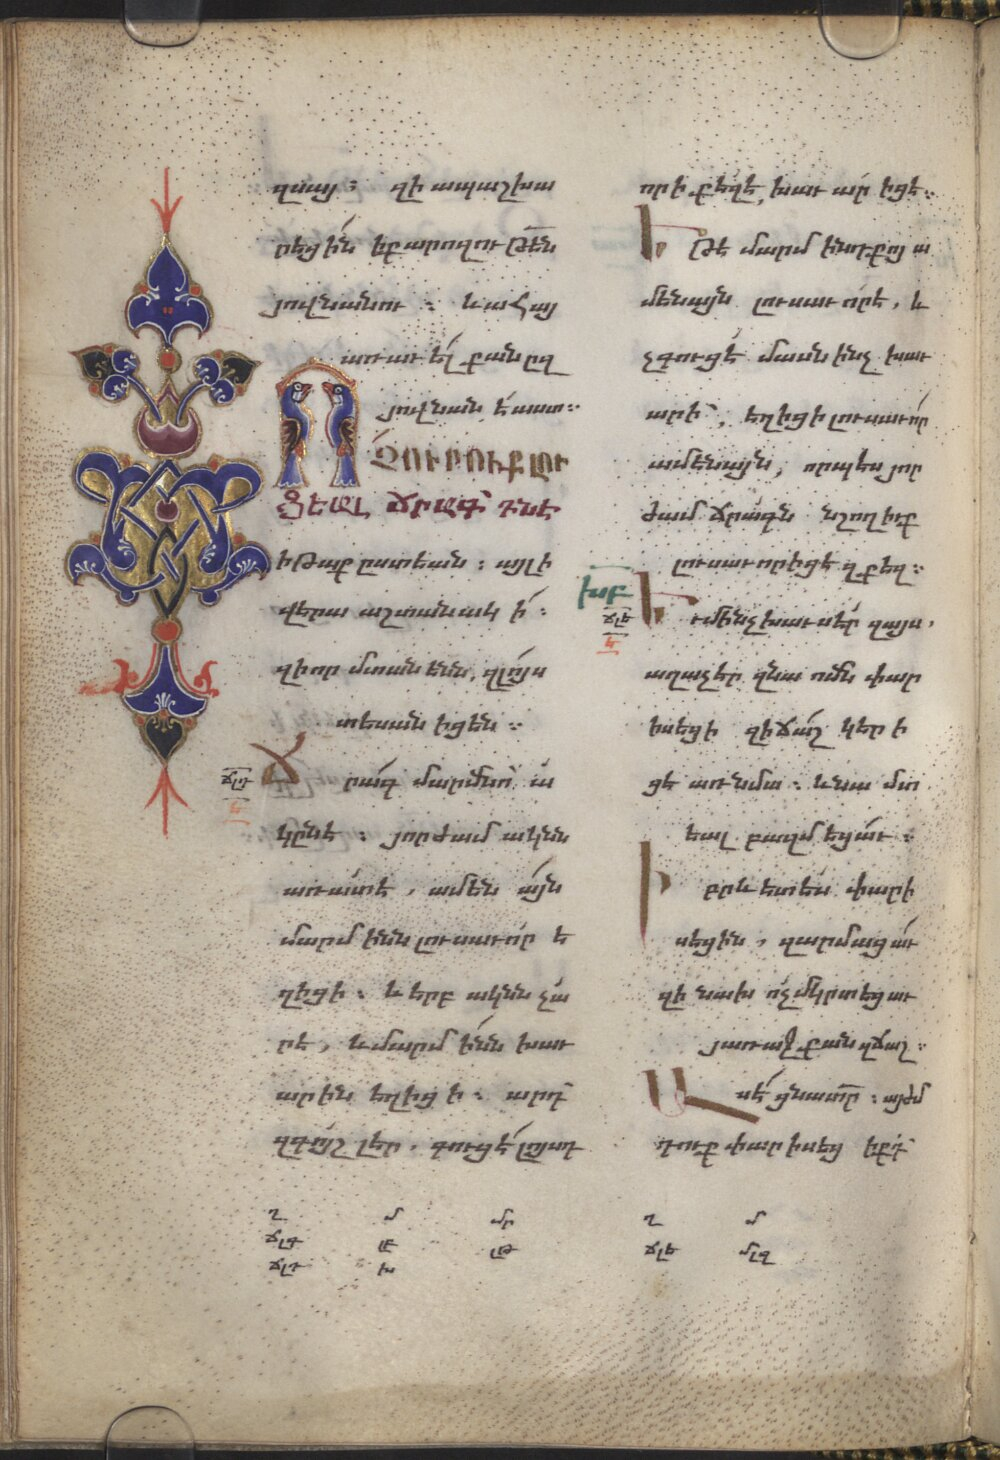 զսայ ։ զի ապաշխա
րեցին ի քարոզութեն
յովնանու ։ և ահայ
առաւել քան ըզ
յովնան է աստ։
ՈՉ ՈՒՐՈՒՔ ԼՈՒ
ՑԵԱԼ ՃՐԱԳ ԴՆԷ
ի թաքըստեան ։ այլ ի
վերա աշտանակի ։
զի որ մտանենն, զլոյս
տեսանիցեն ։
ճլդ Ճրագ մարմնո՝ ա
ե
կընէ ։ յորժամ ակնն
առատէ, ամենայն
մարմինն լուսաւոր ե
ղիցի ։ և երբ ակնն չա
րէ, և մարմինն խաւ
արին եղիցի ։ արդ՝
զգոյշ լեր, գուցէ լոյսդ
որ ի քեզէ, խաւար իցէ։
Եթէ մարմինդ քոյ ա
մենայն լուսաւորէ, և
չգուցէ մասն ինչ խաւ
արի՝, եղիցի լուսաւոր
ամենայն, որպես յոր
ժամ ճրագն նշողիւք
լուսաւորիցէ զքեզ։
ճլե Եւ մինչ խաւսէր զայս,
ե
աղաչէր զնա ոմն փար
իսեցի զի ճաշ կերի
ցէ առ նմա ։ և նա մտ
եալ բազմեցաւ ։
Իբրև ետես փարի
սեցին, զարմացաւ
զի նախ ոչ մկրտեցաւ
յառաջ քան զճաշ։
Ասէ ցնա տր ։ այժմ
դուք փարիսեցիքդ՝
ղ մ մր
ճլգ
ճլդ խ
ղ մ
ճլե